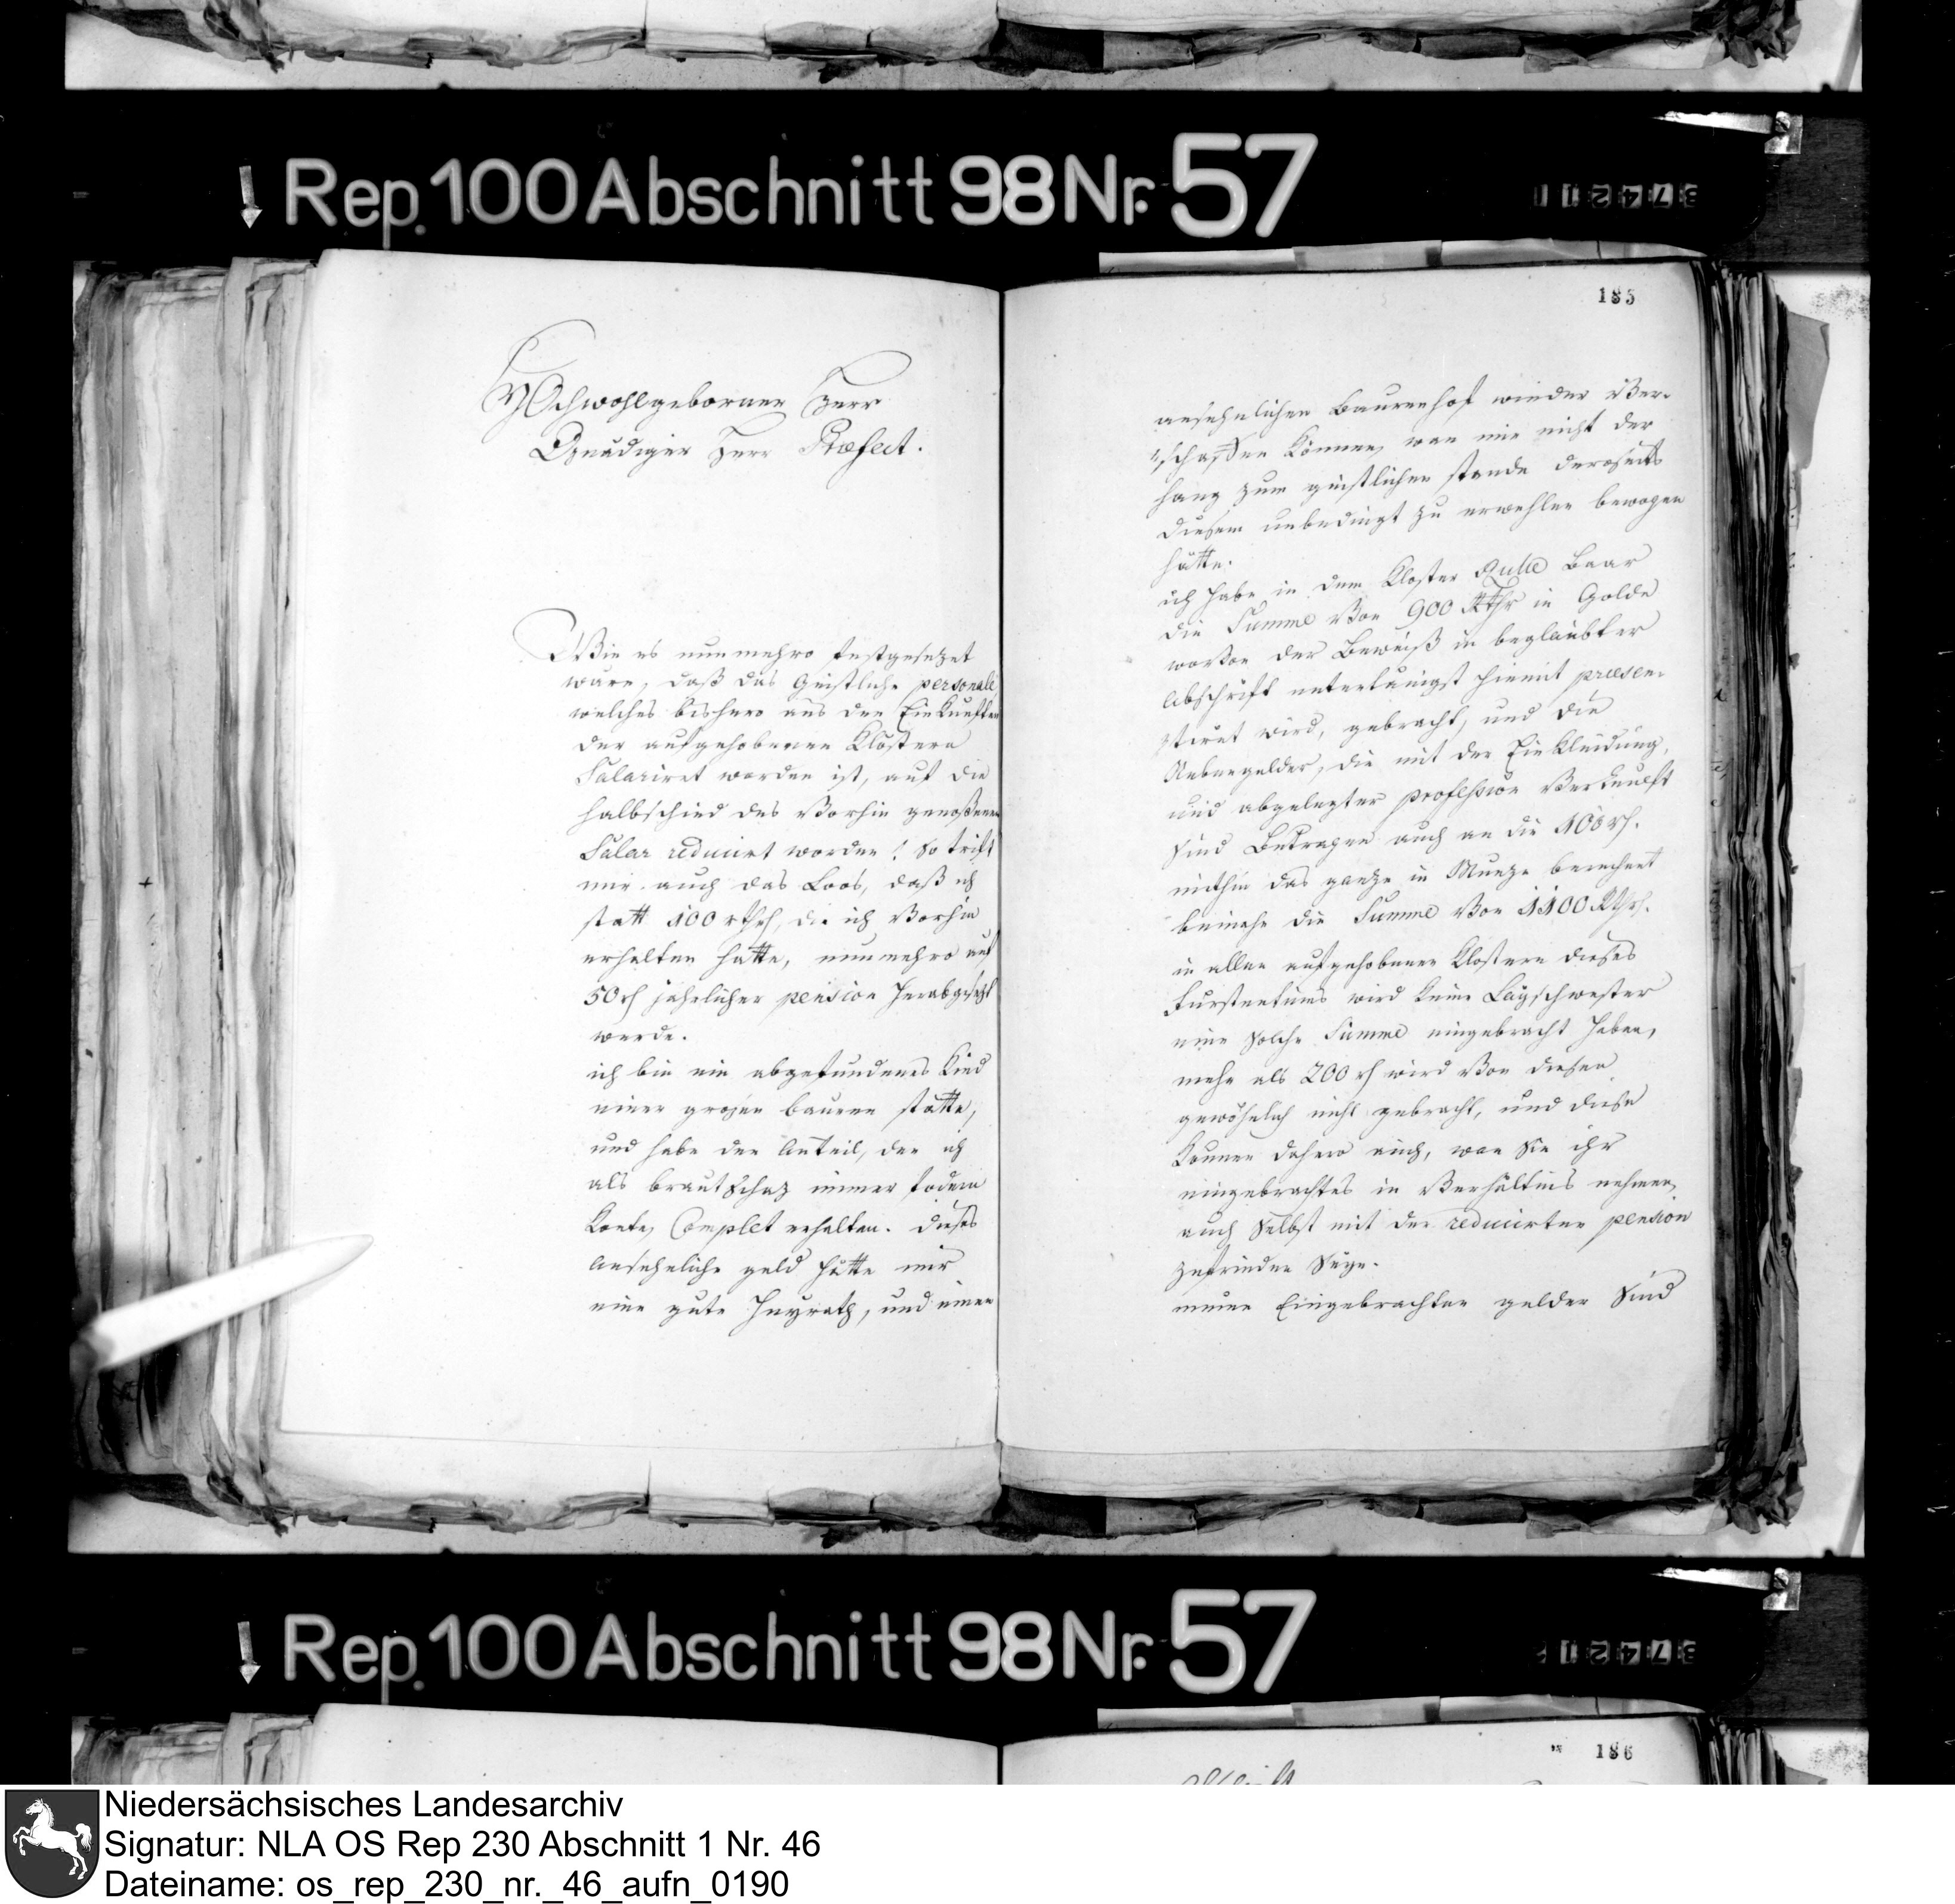 ↓ Rep. 100 Abschnitt 98 Nr. 57
Hochwohlgeborner Herr
Gnädiger Herr Præfect.
Wie es nunmehro festgesezet
ware, daß das Geistliche personale,
welches bishero aus den Einkünften
der aufgehobenen Klöstern
Salariret worden ist, auf die
halbschied des Vorhin genoßenen
Salar reducirt worden! So trift
mir auch das Loos, daß ich
statt 100 rthlr, die ich Vorhin
erhalten hatte, nunmehro auf
50 rl jahrlicher pension herabgesezt
werde.
ich bin ein abgefundenes Kind
einer großen bauren statte,
und habe den Anteil, den ich
als brautschaz immer fodern
Konte, Complet erhalten. dieses
Ansehnliche geld hätte mir
eine gute Heyrath, und einen
185
ansehnlichen Baurenhof wieder Ver-
schaffen Können, wan mir nicht der
hang zum geistlichen stande
diesem unbedingt zu erwehlen bewogen
hätte.
ich habe in dem Kloster Rulle Baar
die Summe Von 900 Rthlr in Golde
worVon der Beweiß in beglaubter
Abschrift untertanigst hiemit præsen-
tiret wird, gebracht, und die
Nebengelder, die mit der Einkleidung,
und abgelegter profession Verknupft
sind Betragen auch an die 100 rl.
mithin das ganze in Munze berechnet
beinahe die Summe Von 1100 Rthlr.
in allen aufgehobenen Klostern dieses
Furstentums wird Keine Laÿschwester
eine solche Summe eingebracht haben,
mehr als 200 rl wird Von diesen
gewöhnlich nicht gebracht, und diese
Konnen dahero auch, wan Sie ihr
eingebrachtes in Verhältnis nehmen,
auch Selbst mit der reducirten pension
zufrieden Seÿn.
meine Eingebrachten gelder Sind
↓ Rep. 100 Abschnitt 98 Nr. 57
186
Niedersächsisches Landesarchiv
Signatur: NLA OS Rep 230 Abschnitt 1 Nr. 46
Dateiname: os_rep_230_nr._46_aufn_0190